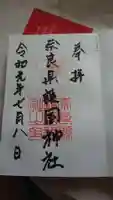 奉拝
奈良県護国神社
令和元年七月八日